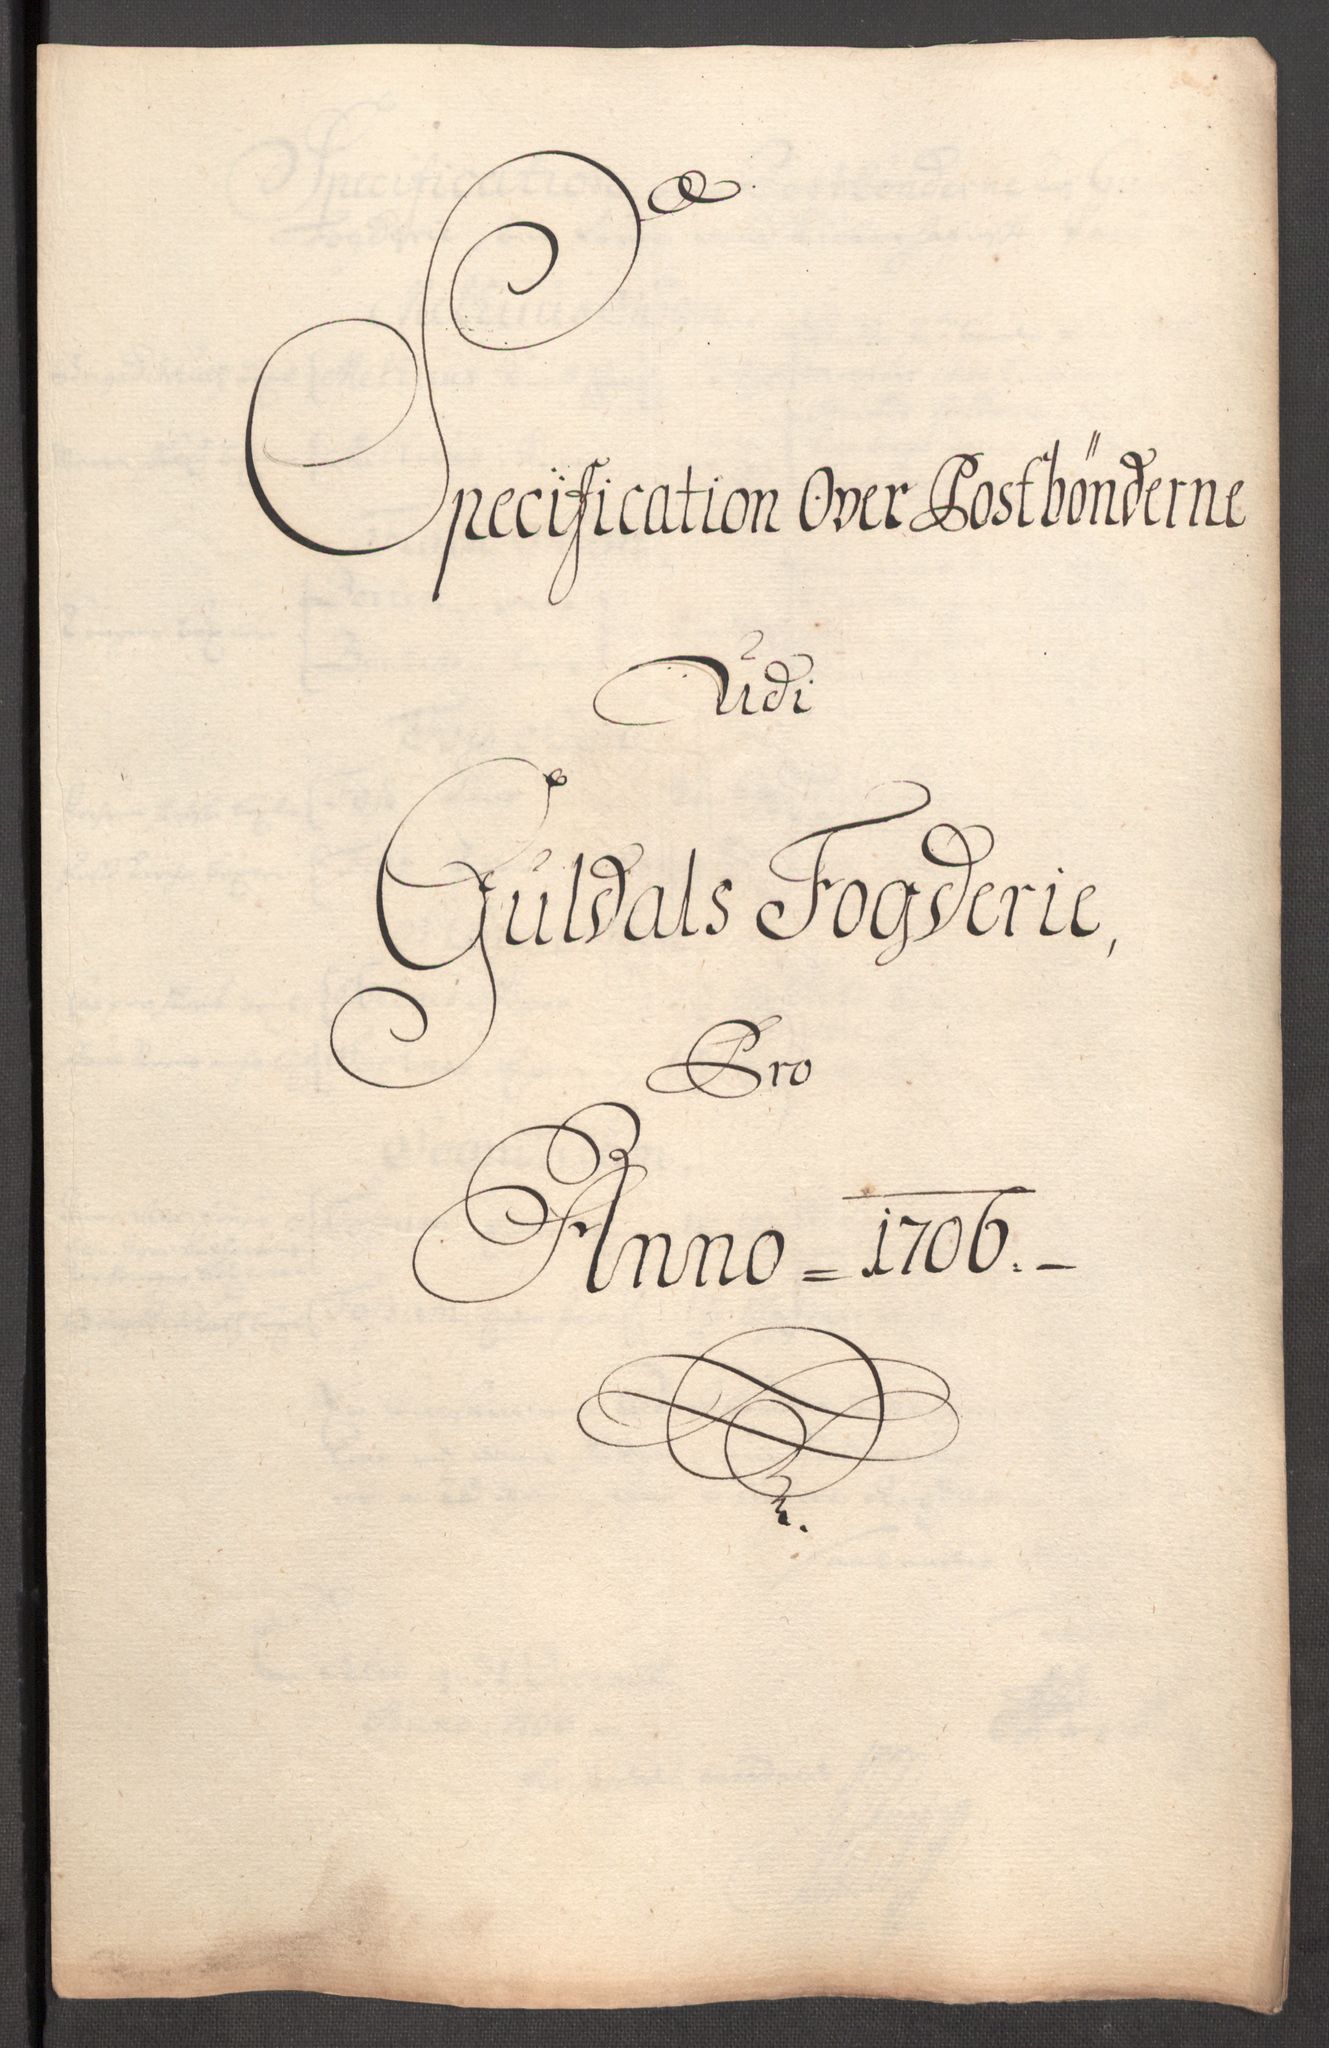 Specification Over Postbönderne
Udi
Guldals Fogderie,
Pro
Anno = 1706. -